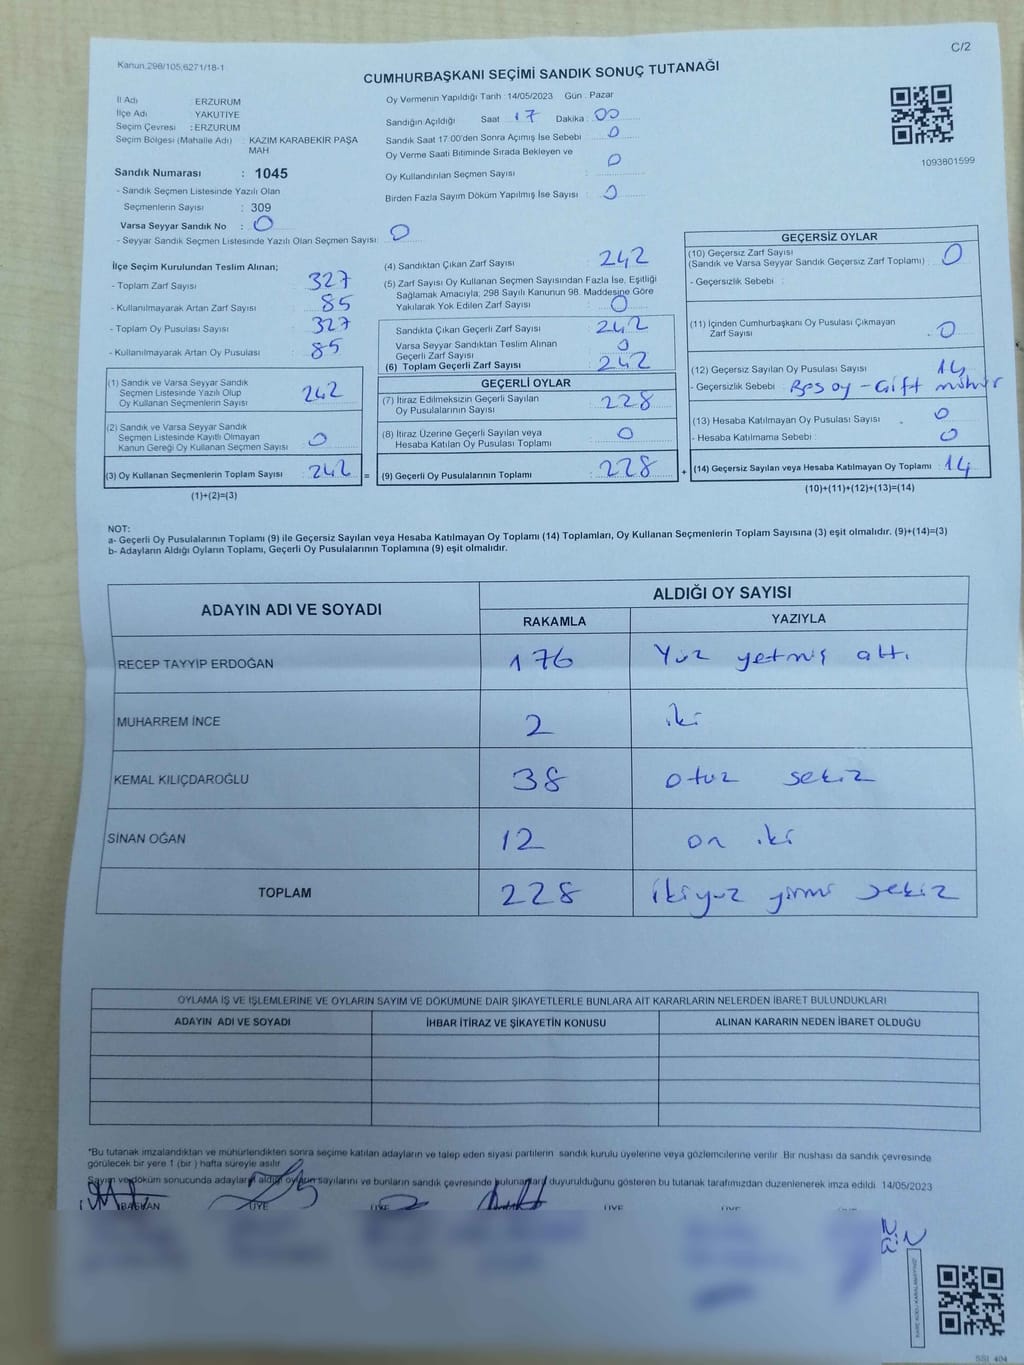 C/2
Kanun.298/105,6271/18-1
CUMHURBAŞKANI SEÇİMİ SANDIK SONUÇ TUTANAĞI
İl Adı ERZURUM
İlçe Adı YAKUTİYE
Seçim Çevresi : ERZURUM
Seçim Bölgesi (Mahalle Adı) : KAZIM KARABEKİR PAŞA
MAH
Sandık Numarası : 1045
- Sandık Seçmen Listesinde Yazılı Olan
Seçmenlerin Sayısı : 309
Varsa Seyyar Sandık No : 0
- Seyyar Sandık Seçmen Listesinde Yazılı Olan Seçmen Sayısı: 0
Oy Vermenin Yapıldığı Tarih : 14/05/2023 Gün : Pazar
Sandığın Açıldığı Saat 17 Dakika 00
Sandık Saat 17.00'den Sonra Açımış İse Sebebi 0
Oy Verme Saati Bitiminde Sırada Bekleyen ve
Oy Kullandırılan Seçmen Sayısı 0
Birden Fazla Sayım Döküm Yapılmış İse Sayısı 0
1093801599
İlçe Seçim Kurulundan Teslim Alınan;
- Toplam Zarf Sayısı 327
- Kullanılmayarak Artan Zarf Sayısı 85
- Toplam Oy Pusulası Sayısı 327
- Kullanılmayarak Artan Oy Pusulası 85
(1) Sandık ve Varsa Seyyar Sandık
Seçmen Listesinde Yazılı Olup
Oy Kullanan Seçmenlerin Sayısı 242
(2) Sandık ve Varsa Seyyar Sandık
Seçmen Listesinde Kayıtlı Olmayan
Kanun Gereği Oy Kullanan Seçmen Sayısı 0
(3) Oy Kullanan Seçmenlerin Toplam Sayısı 242 =
(1)+(2)=(3)
(4) Sandıktan Çıkan Zarf Sayısı 242
(5) Zarf Sayısı Oy Kullanan Seçmen Sayısından Fazla İse, Eşitliği
Sağlamak Amacıyla; 298 Sayılı Kanunun 98. Maddesine Göre
Yakılarak Yok Edilen Zarf Sayısı 0
Sandıkta Çıkan Geçerli Zarf Sayısı 242
Varsa Seyyar Sandıktan Teslim Alınan
Geçerli Zarf Sayısı 0
(6) Toplam Geçerli Zarf Sayısı 242
GEÇERLİ OYLAR
(7) İtiraz Edilmeksizin Geçerli Sayılan
Oy Pusulalarının Sayısı 228
(8) İtiraz Üzerine Geçerli Sayılan veya
Hesaba Katılan Oy Pusulası Toplamı 0
(9) Geçerli Oy Pusulalarının Toplamı 228 +
GEÇERSİZ OYLAR
(10) Geçersiz Zarf Sayısı
(Sandık ve Varsa Seyyar Sandık Geçersiz Zarf Toplamı) 0
- Geçersizlik Sebebi :
(11) İçinden Cumhurbaşkanı Oy Pusulası Çıkmayan
Zarf Sayısı 0
(12) Geçersiz Sayılan Oy Pusulası Sayısı 14
- Geçersizlik Sebebi : Boş oy - Çift mühür
(13) Hesaba Katılmayan Oy Pusulası Sayısı 0
- Hesaba Katılmama Sebebi : 0
(14) Geçersiz Sayılan veya Hesaba Katılmayan Oy Toplamı : 14
(10)+(11)+(12)+(13)=(14)
NOT:
a- Geçerli Oy Pusulalarının Toplamı (9) ile Geçersiz Sayılan veya Hesaba Katılmayan Oy Toplamı (14) Toplamları, Oy Kullanan Seçmenlerin Toplam Sayısına (3) eşit olmalıdır. (9)+(14)=(3)
b- Adayların Aldığı Oyların Toplamı, Geçerli Oy Pusulalarının Toplamına (9) eşit olmalıdır.
ADAYIN ADI VE SOYADI ALDIĞI OY SAYISI
RAKAMLA YAZIYLA
RECEP TAYYİP ERDOĞAN 176 Yüz yetmiş altı
MUHARREM İNCE 2 iki
KEMAL KILIÇDAROĞLU 38 otuz sekiz
SİNAN OĞAN 12 on iki
TOPLAM 228 ikiyüz yirmi sekiz
OYLAMA İŞ VE İŞLEMLERİNE VE OYLARIN SAYIM VE DÖKÜMÜNE DAİR ŞİKAYETLERLE BUNLARA AİT KARARLARIN NELERDEN İBARET BULUNDUKLARI
ADAYIN ADI VE SOYADI İHBAR İTİRAZ VE ŞİKAYETİN KONUSU ALINAN KARARIN NEDEN İBARET OLDUĞU
*Bu tutanak imzalandıktan ve mühürlendikten sonra seçime katılan adayların ve talep eden siyasi partilerin sandık kurulu üyelerine veya gözlemcilerine verilir. Bir nushası da sandık çevresinde
görülecek bir yere 1 (bir ) hafta süreyle asılır.
Sayım ve döküm sonucunda adayların aldığı oyların sayılarını ve bunların sandık çevresinde bulunanlara duyurulduğunu gösteren bu tutanak tarafımızdan düzenlenerek imza edildi. 14/05/2023
BAŞKAN ÜYE ÜYE ÜYE ÜYE